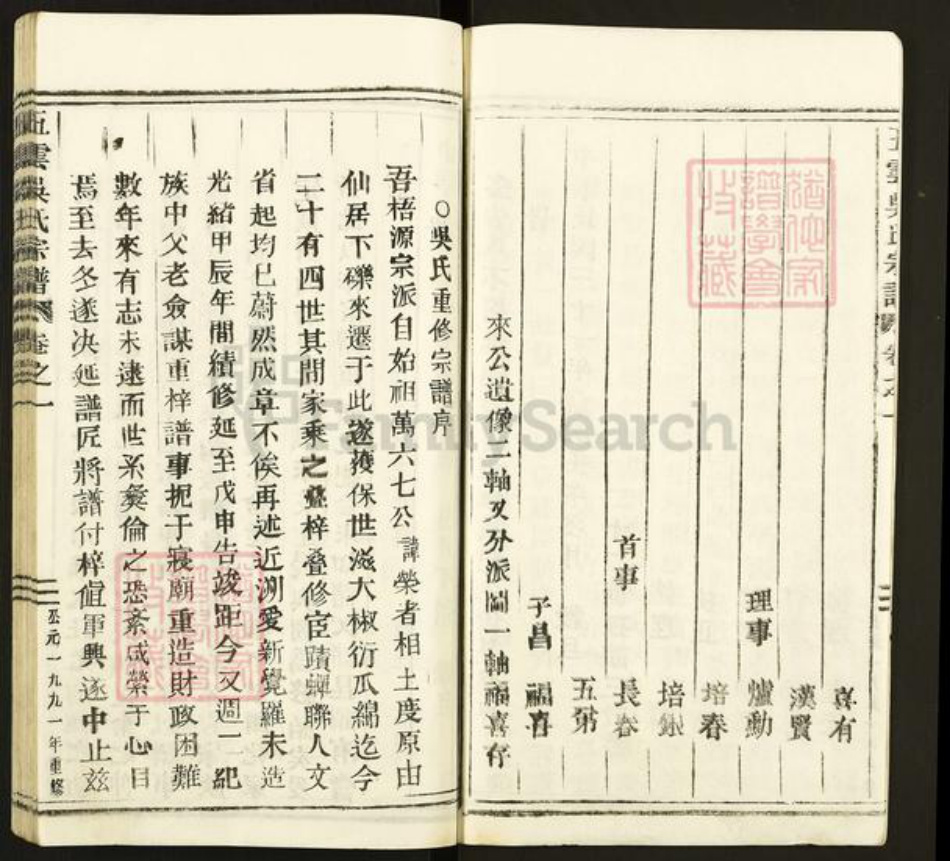 五雲吳氏宗譜 卷之一
喜有
漢賢
理事 爐勳
培春
培銀
首事 長春
五弟
子昌 福喜
來公遺像二軸又分派圖一軸福喜存
○吳氏重修宗譜序
吾梧源宗派自始祖萬六七公諱榮者相土度原由
仙居下礫來遷于此遂獲保世滋大椒衍瓜綿迄今
二十有四世其間家乘之叠梓叠修宦蹟蟬聯人文
省起均已蔚然成章不俟再述近溯愛新覺羅未造
光緒甲辰年間續修延至戊申告竣距今又週一紀
族中父老僉謀重梓譜事扼于寢廟重造財政困難
數年來有志未逮而世系彜倫之恐紊咸縈于心目
焉至去冬遂决延譜匠將譜付梓值軍興遂中止茲
五雲吳氏宗譜 卷之一
公元一九九一年重修
猶他家譜學會收藏
猶他家譜學會收藏
FamilySearch